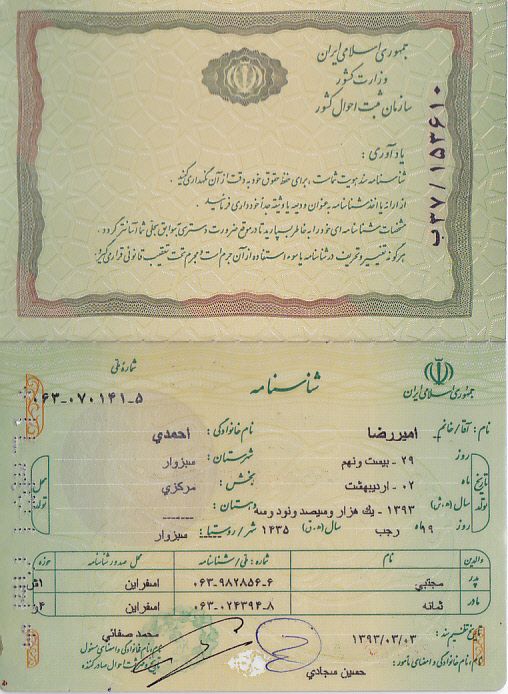 جمهوری اسلامی ایران
وزارت کشور
سازمان ثبت احوال کشور
ب۳۷/۱۵۳۶۱۰
یادآوری :
شناسنامه سند هویت شماست، برای حفظ حقوق خود به دقت از آن نگهداری کنید .
از ارائه یا اخذ شناسنامه به عنوان ودیعه یا وثیقه جداً خودداری فرمائید .
مشخصات شناسنامه ای خود را به خاطر بسپارید تا در موقع ضرورت دسترسی به سوابق سجلی شما آسانتر گردد .
هرگونه تغییر و تحریف در شناسنامه یا سوء استفاده از آن جرم است و مجرم تحت تعقیب قانونی قرار می گیرد .
جمهوری اسلامی ایران
شناسنامه
شماره ملی
۰۶۳-۰۷۰۱۴۱-۵
نام : آقا/خانم امیررضا نام خانوادگی : احمدي
تاریخ تولد
روز ۲۹ - بیست ونهم
ماه ۰۲ - اردیبهشت
سال (ه.ش) ۱۳۹۳ - یك هزار وسیصد ونود وسه
روز ۱۹ ماه رجب سال (ه.ق) ۱۴۳۵
محل تولد
شهرستان : سبزوار
بخش : مرکزي
دهستان : ------
شهر / روستا : سبزوار
والدین نام شماره : ملی / شناسنامه محل صدور شناسنامه حوزه
پدر مجتبي ۰۶۳-۹۸۲۸۵۶-۶ اسفراین
مادر ثمانه ۰۶۳-۰۲۴۳۹۴-۸ اسفراین
تاریخ تنظیم سند : ۱۳۹۳/۰۳/۰۳
نام خانوادگی و امضای مأمور :
حسین سجادي
محمد صفائي
نام، نام خانوادگی و امضای مسئول